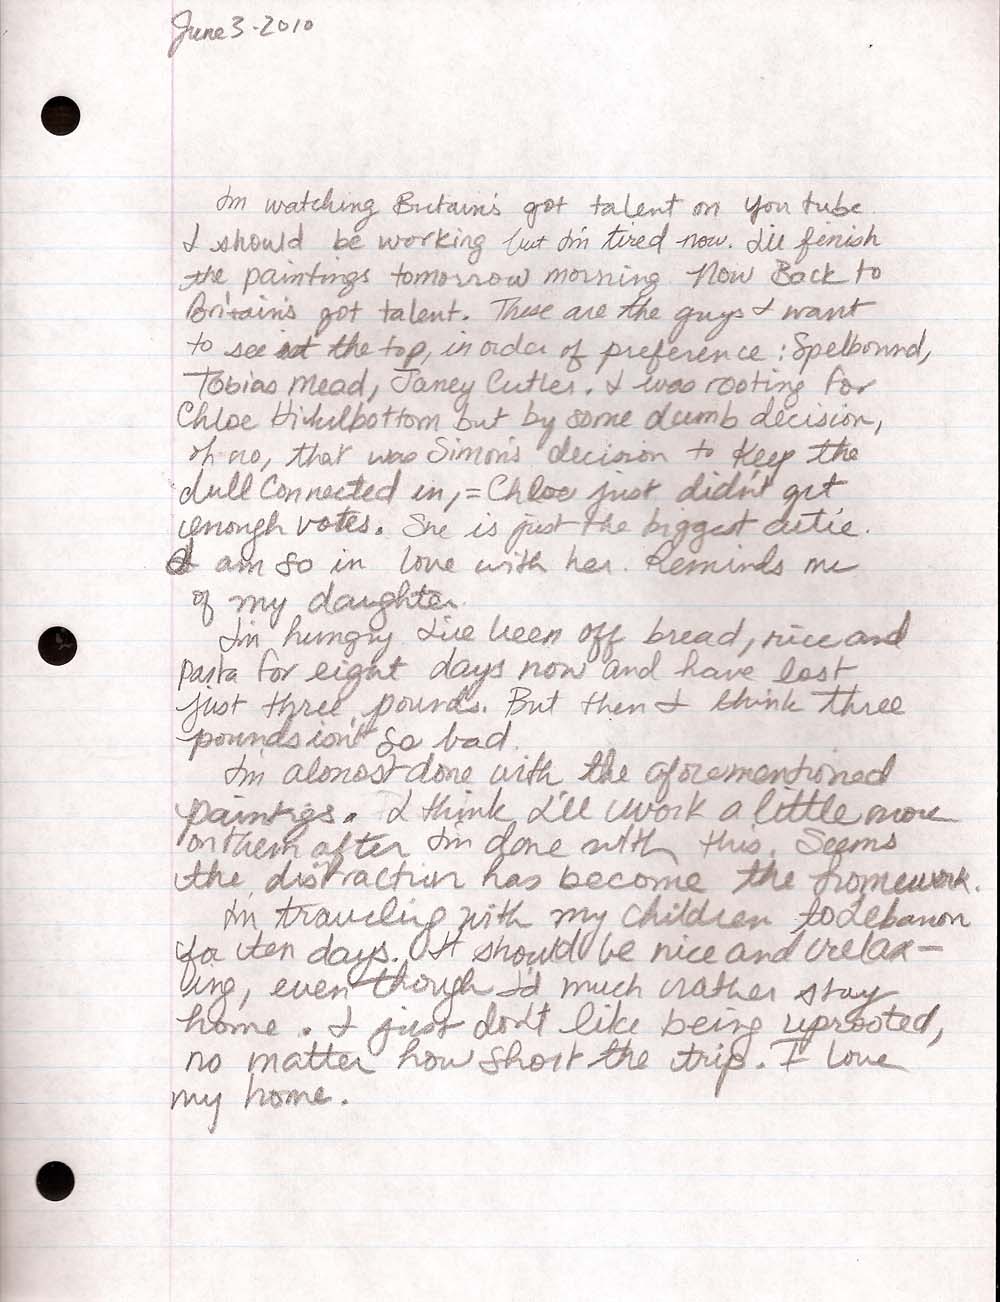 June 3-2010
Im watching Britain's got talent on You tube.
I should be working but I'm tired now. I'll finish
the paintings tomorrow morning Now Back to
Britain's got talent. These are the guys I want
to see at the top, in order of preference: Spelbound,
Tobias Mead, Janey Cutler. I was rooting for
Chloe Hickelbottom but by some dumb decision,
oh no, that was Simon's decision to Keep the
dull Connected in, = Chloe just didn't get
enough votes. She is just the biggest cutie.
I am so in love with her. Reminds me
of my daughter.
I'm hungry I've been off bread, rice and
pasta for eight days now and have lost
just three pounds. But then I think three
pounds isn't so bad.
I'm almost done with the aforementioned
paintigs. I think I'll work a little more
on them after I'm done with this. Seems
the distraction has become the homework.
I'm traveling with my children to Lebanon
for ten days. It should be nice and relax-
ing, even though I'd much rather stay
home. I just don't like being uprooted,
no matter how short the trip. I love
my home.